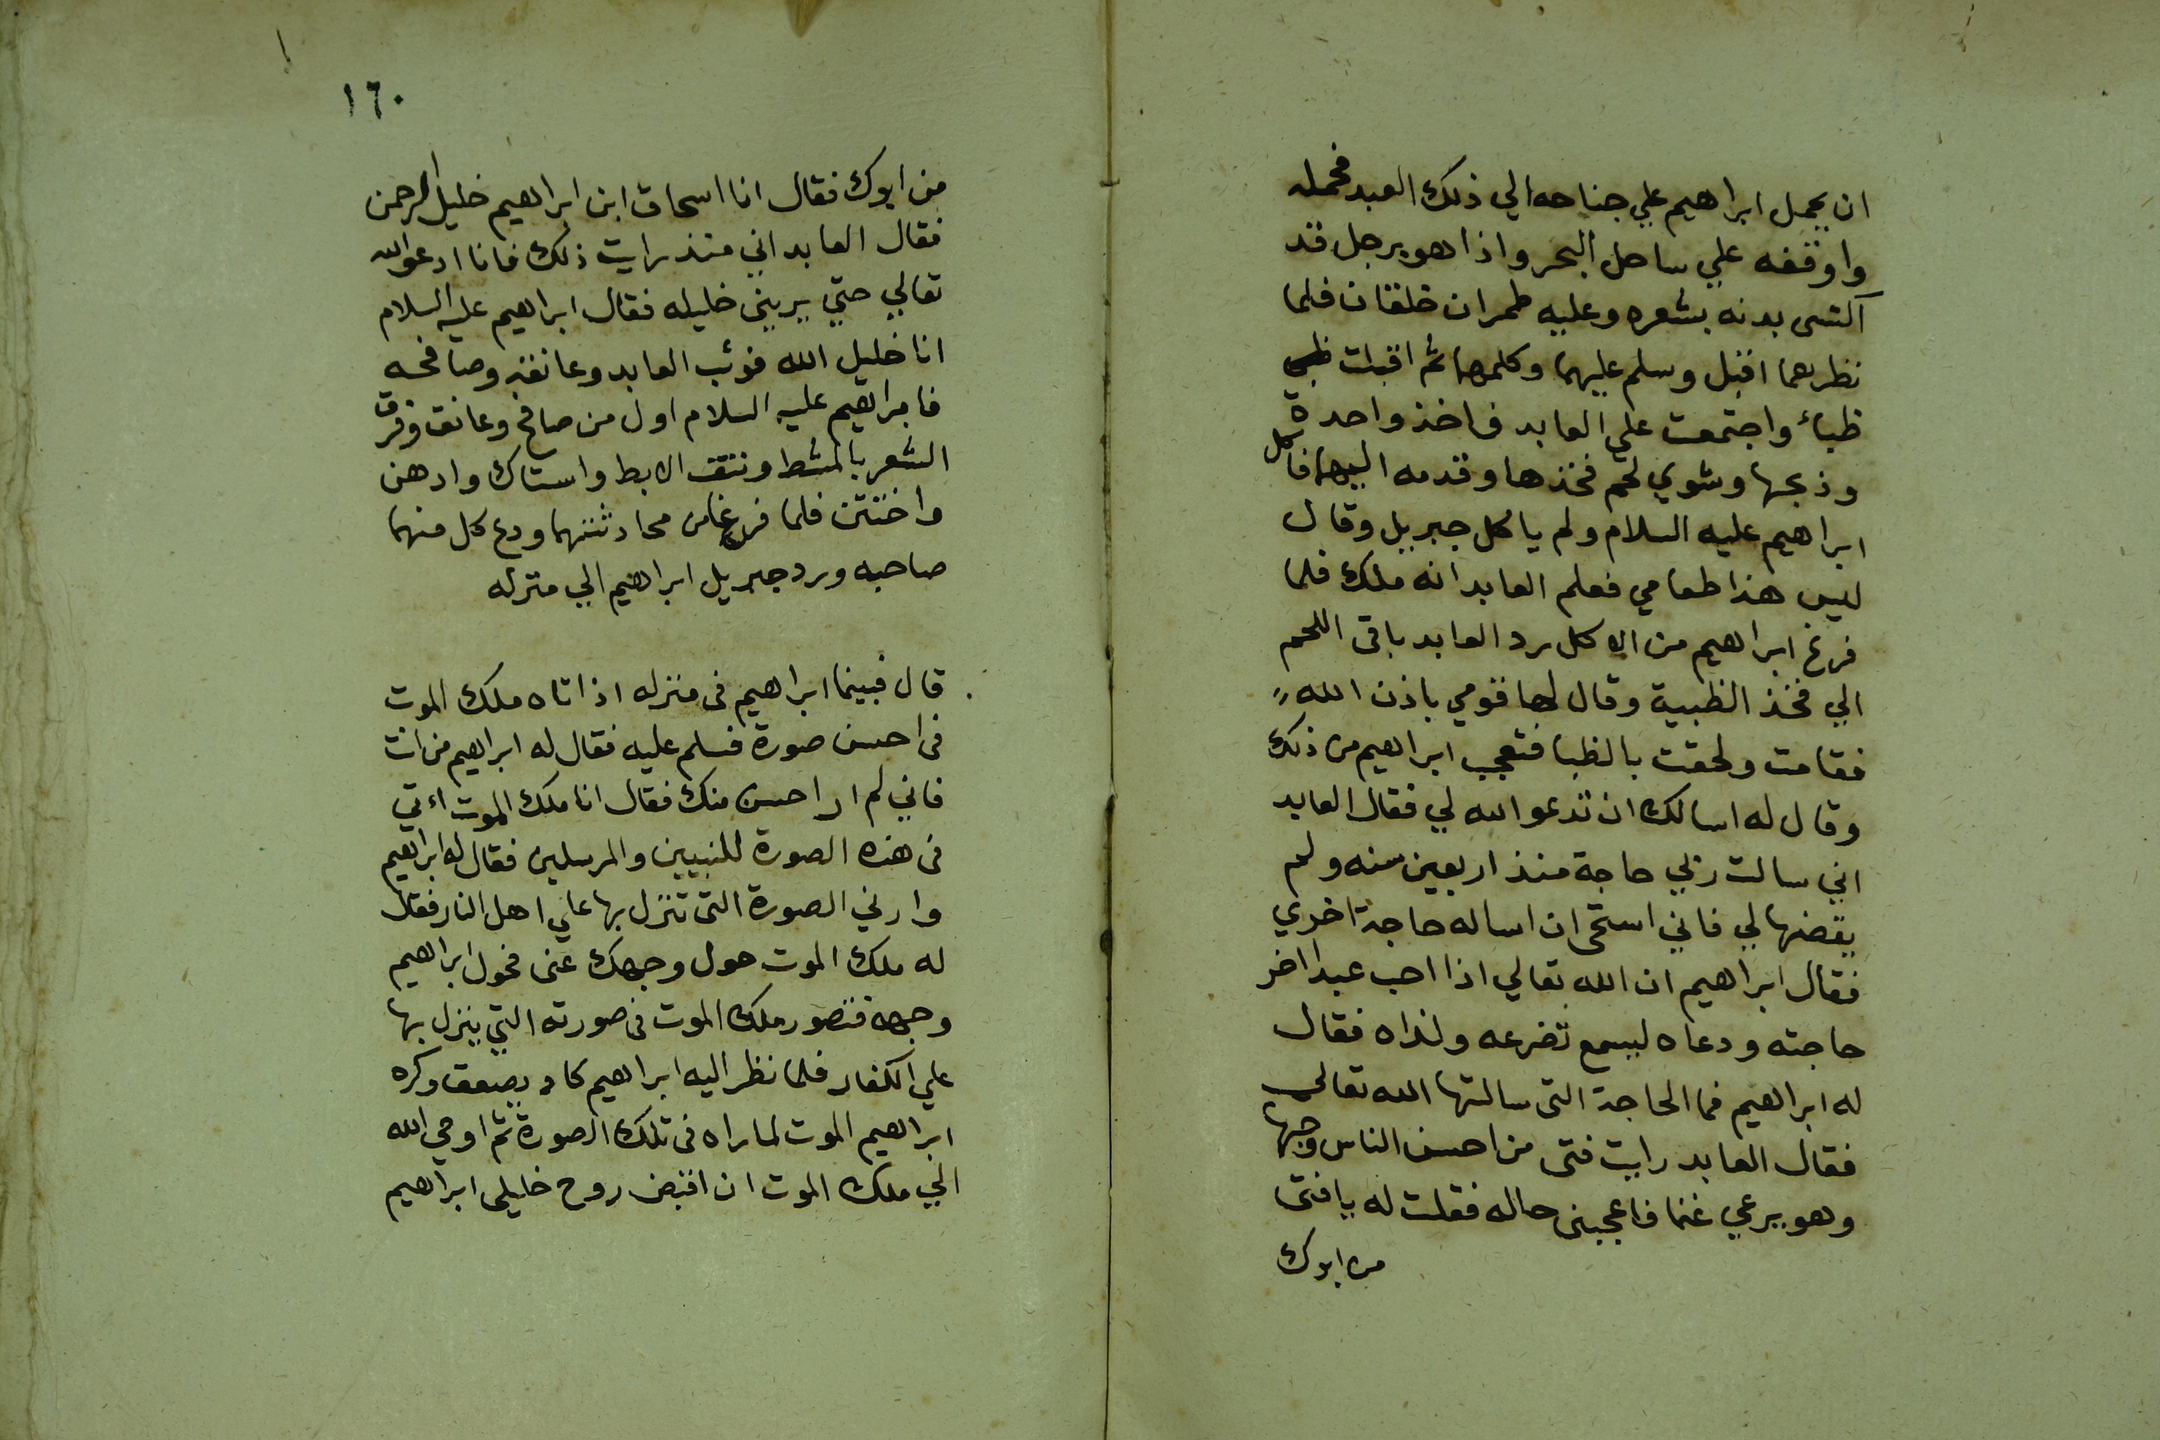 ان يحمل ابراهيم علي جناحه الي ذلك العبد فحمله
واوقفه علي ساحل البحر واذا هو برجل قد
اكتسى بدنه بشعره وعليه طمران خلقان فلما
نظر بهما اقبل وسلم عليهما وكلمهما ثم اقبلت
ظباء واجتمعت علي العابد فاخذ واحدة
وذبحها وشوي لحم فخذها وقدمه اليهما فاكل
ابراهيم عليه السلام ولم ياكل جبريل وقال
ليس هذا طعامي فعلم العابد انه ملك فلما
فرغ ابراهيم من الاكل رد العابد باقى اللحم
الي فخذ الظبية وقال لها قومي باذن الله
فقامت ولحقت بالظبا فتعجب ابراهيم من ذلك
وقال له اسالك ان تدعو الله لي فقال العابد
اني سالت ربي حاجة منذ اربعين سنه ولم
يقضها لي فاني استحى ان اساله حاجة اخري
فقال ابراهيم ان الله تعالي اذا احب عبدا اخر
حاجته ودعاه ليسمع تضرعه ونداه فقال
له ابراهيم فما الحاجة التى سالتها الله تعالى
فقال العابد رايت فتى من احسن الناس وجها
وهو يرعي غنما فاعجبنى حاله فقلت له يا فتى
من ابوك
١٦٠
من ابوك فقال انا اسحاق ابن ابراهيم خليل الرحمن
فقال العابد اني منذ رايت ذلك فانا ادعو الله
تعالي حتي يرينى خليله فقال ابراهيم عليه السلام
انا خليل الله فوثب العابد وعانقه وصافحه
فابراهيم عليه السلام اول من صافح وعانق وفرق
الشعر بالمشط ونتف الابط واستاك وادهن
واختتن فلما فرغا من محادثتهما ودع كل منهما
صاحبه ورد جبريل ابراهيم الي منزله
قال فبينما ابراهيم فى منزله اذ اتاه ملك الموت
فى احسن صورة فسلم عليه فقال له ابراهيم من انت
فاني لم ار احسن منك فقال انا ملك الموت اءتي
فى هذه الصورة للنبيين والمرسلين فقال له ابراهيم
وارني الصورة التى تنزل بها علي اهل النار فقال
له ملك الموت حول وجهك عنى فحول ابراهيم
وجهه فتصور ملك الموت فى صورته التي ينزل بها
علي الكفار فلما نظر اليه ابراهيم كاد يصعق وكره
ابراهيم الموت لما راه فى تلك الصورة ثم اوحي الله
الي ملك الموت ان اقبض روح خليلى ابراهيم